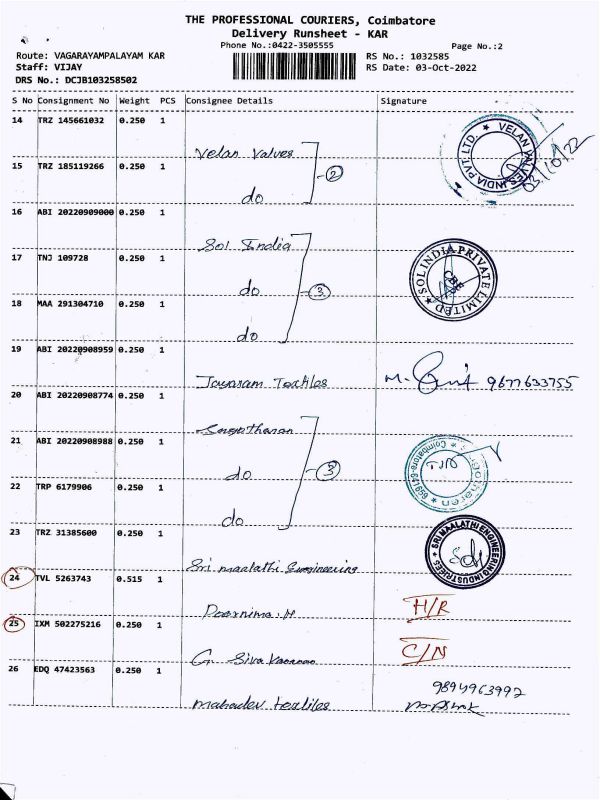 THE PROFESSIONAL COURIERS, Coimbatore
Delivery Runsheet - KAR
Phone No.:0422-3505555
Page No.:2
Route: VAGARAYAMPALAYAM KAR
RS No.: 1032585
Staff: VIJAY
RS Date: 03-Oct-2022
DRS No.: DCJB103258502
S No Consignment No Weight PCS Consignee Details Signature
14 TRZ 145661032 0.250 1
Velan Valves
VELAN VALVES INDIA PVT. LTD.
03/10/22
15 TRZ 185119266 0.250 1
②
do
16 ABI 20220909000 0.250 1
Sol India
17 TNJ 109728 0.250 1
do
③
SOL INDIA PRIVATE LIMITED
CBE
18 MAA 291304710 0.250 1
do
19 ABI 20220908959 0.250 1
Jayaram Textiles
M. 9677633755
20 ABI 20220908774 0.250 1
21 ABI 20220908988 0.250 1
do
③
Coimbatore-641
22 TRP 6179906 0.250 1
do
23 TRZ 31385600 0.250 1
Sri maalathi Engineering
SRI MAALATHI ENGINEERING INDUSTRIES
24 TVL 5263743 0.515 1
Poornima.H
H/R
25 IXM 502275216 0.250 1
G. Siva
C/N
26 EDQ 47423563 0.250 1
Mahadev textiles
9894963992